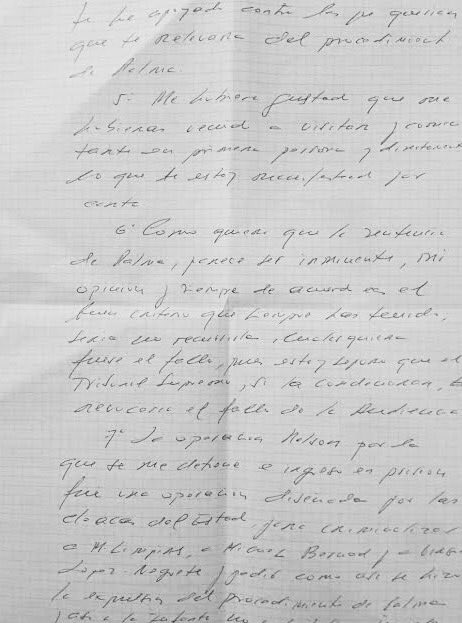 te he apoyado contra los que querian
que te relevara del procedimiento
de Palma.
5º Me hubiera gustado que me
hubieras venido a visitar y comen
tarte en primera persona y directamente
lo que te estoy manifestando por
carta
6º Como quiera que la sentencia
de Palma, parece ser inminente, mi
opinion y siempre de acuerdo con el
buen criterio que siempre has tenido,
seria no recurrirla, cualesquiera
fuere el fallo, pues estoy seguro que el
Tribunal Supremo, si la condenaran,
revocaria el fallo de la Audiencia
7º La operacion Nelson por la
que se me detiene e ingreso en prision
fue una operacion diseñada por las
cloacas del Estado para criminalizar
a M. Limpias, a Miguel Bernad y a Virginia
Lopez-Negrete y pedir como asi se hizo
la expulsion del procedimiento de Palma
a la Infanta